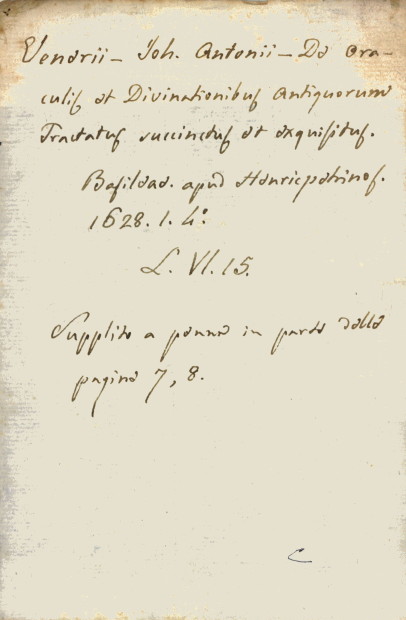 Venerii - Joh. Antonii - De Ora-
culis et Divinationibus Antiquorum
Tractatus succinctus et exquisitus.
Basileae. apud Henricpetrinos.
1628. 1. 4°.
L. VI. 15.
Supplito a penna in parte delle
pagine 7, 8.
C